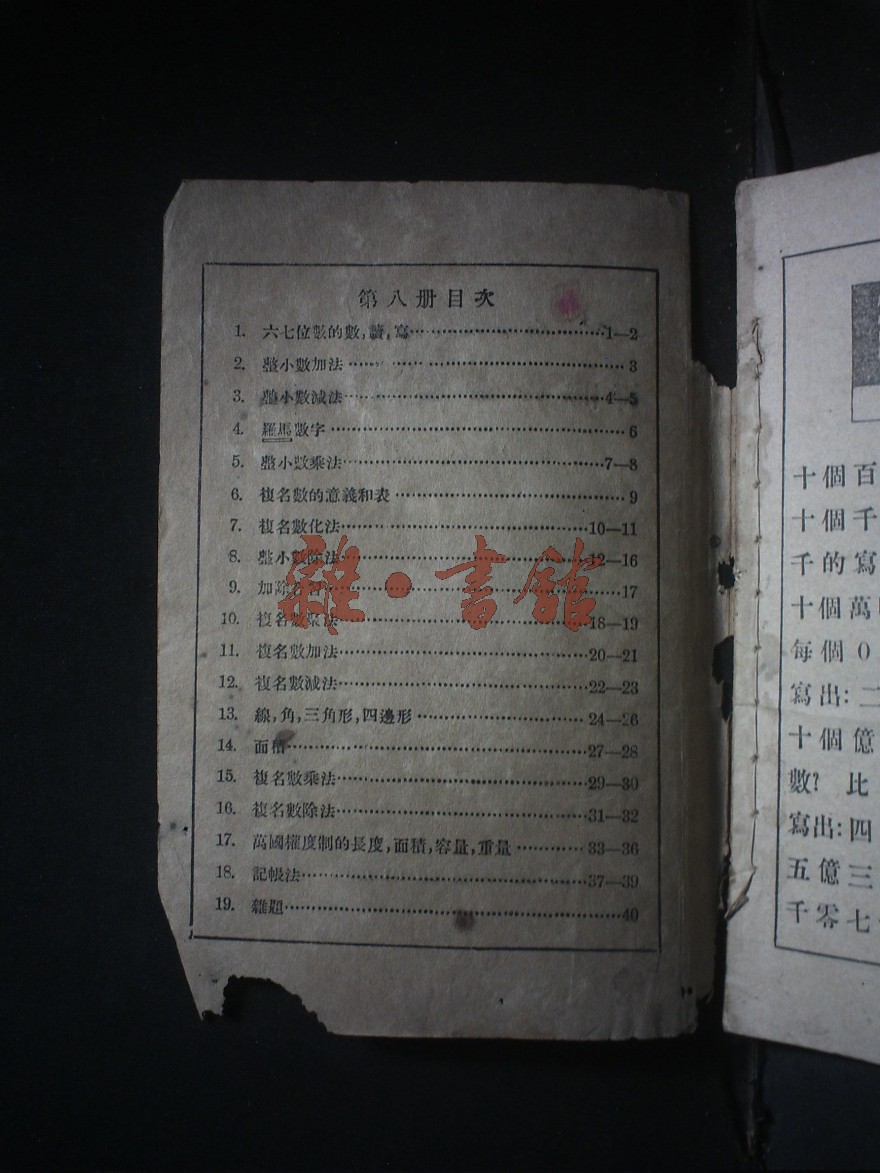 第八册目次
1. 六七位數的數,讀,寫……1—2
2. 整小數加法……3
3. 整小數減法……4—5
4. 羅馬數字……6
5. 整小數乘法……7—8
6. 複名數的意義和表……9
7. 複名數化法……10—11
8. 整小數除法……12—16
9. 加除……17
10. 複名數聚法……18—19
11. 複名數加法……20—21
12. 複名數減法……22—23
13. 線,角,三角形,四邊形……24—26
14. 面積……27—28
15. 複名數乘法……29—30
16. 複名數除法……31—32
17. 萬國權度制的長度,面積,容量,重量……33—36
18. 記帳法……37—39
19. 雜題……40
雜·書館
十個百
十個千
千的寫
十個萬
每個0
寫出:二
十個億
數? 比
寫出:四
五億三
千零七